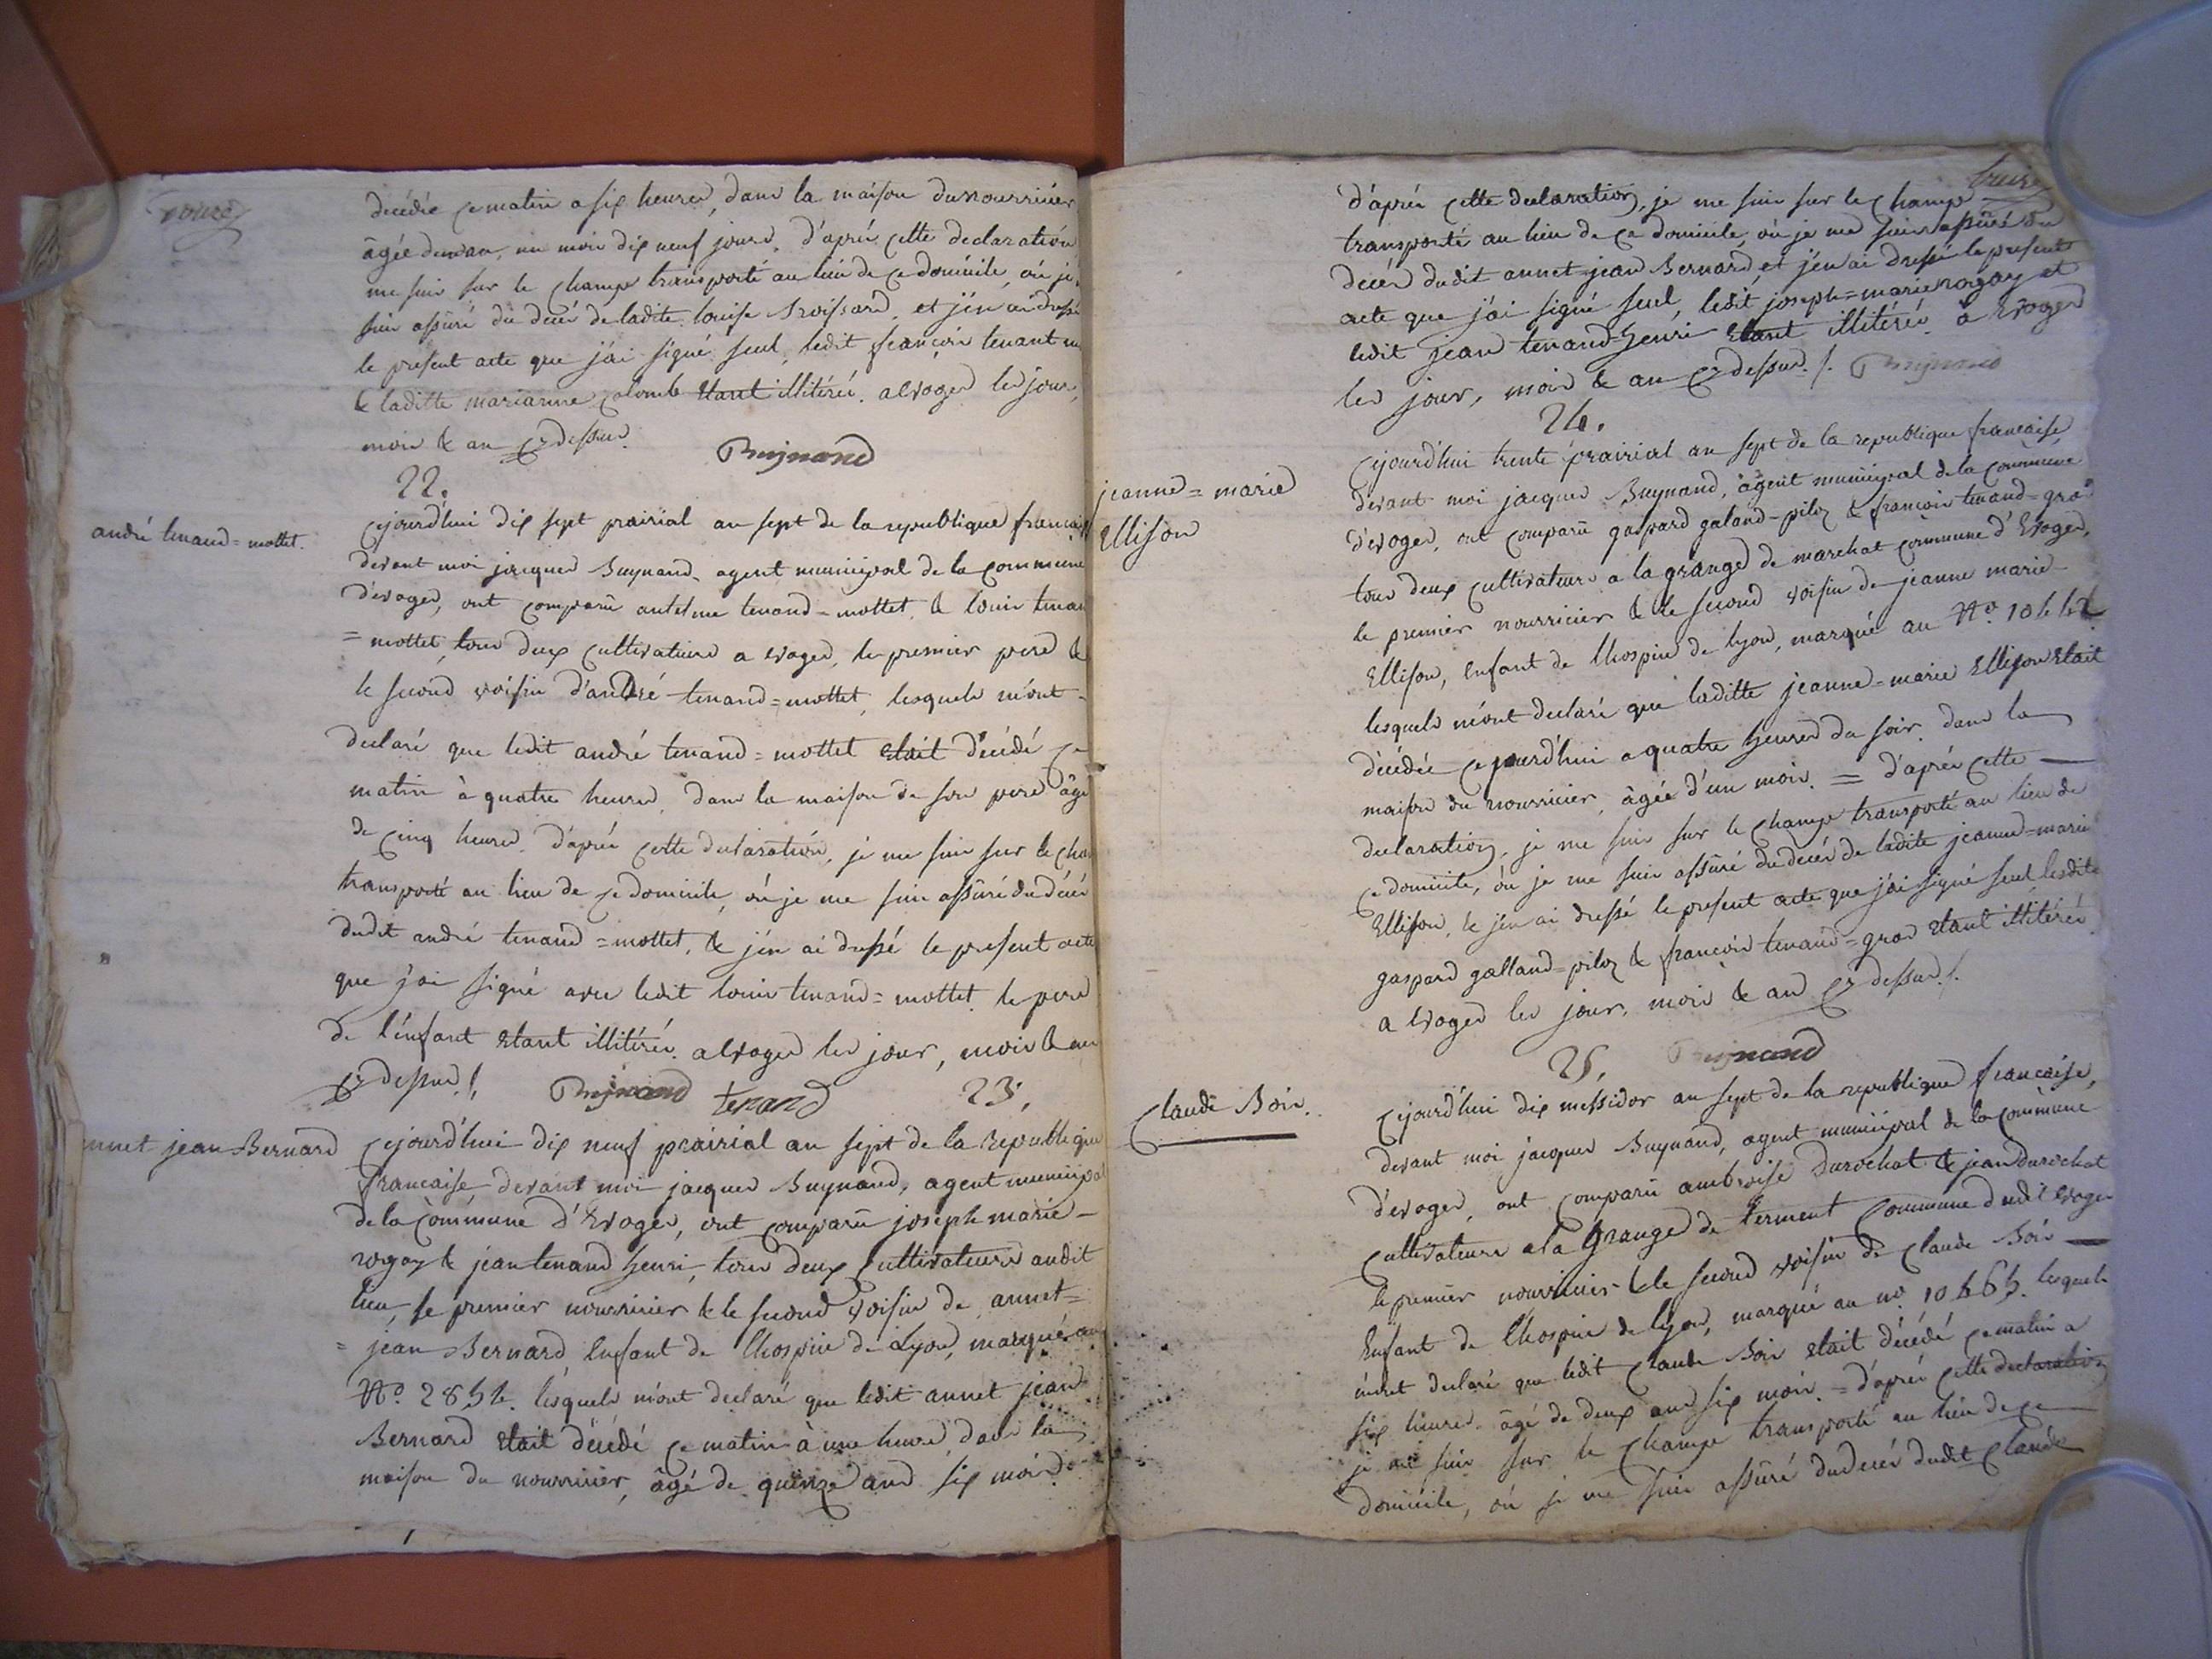 douze
décédée ce matin a six heures, dans la maison du nourricier
âgée d'un an, un mois dix neuf jours. d'aprés cette declaration
me suis sur le champ transporté au lieu de ce domicile, où je
suis assuré du décés de ladite louise Broissard, et j'en ai dressé
le present acte que j'ai signé seul, ledit françois tenant
& laditte marianne colomb étant illitérés. a Evoges les jour,
mois & an cy dessus.
Buynand
22.
andré tenand=mottet.
Cejourd'hui dix sept prairial an sept de la republique francaise
devant moi jacques Buynand, agent municipal de la commune
d'evoges, ont comparû antelme tenand=mottet, & louis tenand
=mottet, tous deux cultivateurs a evoges, le premier pere &
le second voisin d'andré tenand=mottet, lesquels m'ont
declaré que ledit andré tenand=mottet était décédé ce
matin à quatre heures, dans la maison de son pere âgé
de cinq heures. d'aprés cette declaration, je me suis sur le champ
transporté au lieu de ce domicile, où je me suis assuré du décés
dudit andré tenand=mottet, & j'en ai dressé le present acte
que j'ai signé avec ledit louis tenand=mottet, le pere
de l'enfant étant illitéré. a Evoges les jour, mois & an
cy dessus./.
Buynand tenand
23.
annet jean Bernard
Cejourd'hui dix neuf prairial an sept de la republique
francaise devant moi jacques Buynand, agent municipal
de la commune d'Evoges, ont comparû joseph marie
rogay & jean tenand henri, tous deux cultivateurs audit
lieu, le premier nourricier & le second voisin de annet=
=jean Bernard, enfant de l'hospice de Lyon, marqué au
N° 2854. lesquels m'ont declaré que ledit annet jean
Bernard était décédé ce matin à une heure, dans la
maison du nourricier, âgé de quinze ans six mois
treize
d'aprés cette declaration, je me suis sur le champ
transporté au lieu de ce domicile, où je me suis assuré du
décés dudit annet=jean Bernard, et j'en ai dressé le present
acte que j'ai signé seul, ledit joseph=marie rogay et
ledit jean tenand-henri étant illitérés. à Evoges
les jour, mois & an cy dessus./. Buynand
24.
jeanne=marie
Ellison
Cejourd'hui trente prairial an sept de la republique francaise,
devant moi jacques Buynand, agent municipal de la commune
d'evoges, ont comparû gaspard galand-piloz & francois tenand=gros
tous deux cultivateurs a la grange de marchat commune d'Evoges,
le premier nourricier & le second voisin de jeanne marie
Ellison, enfant de l'hospice de lyon, marqué au N°
lesquels m'ont declaré que laditte jeanne=marie Ellison était
décédée cejourd'hui a quatre heures du soir, dans la
maison du nourricier, âgée d'un mois. = d'aprés cette
declaration, je me suis sur le champ transporté au lieu de
ce domicile, où je me suis assuré du décés de ladite jeanne=marie
Ellison, & j'en ai dressé le present acte que j'ai signé seul lesdits
gaspard galland=piloz & francois tenand=gros étant illitérés.
a Evoges les jour, mois & an cy dessus./.
25. Buynand
Claude Boir.
Cejourd'hui dix messidor an sept de la republique francaise,
devant moi jacques Buynand, agent municipal de la commune
d'evoges, ont comparû ambroise Durochat & jean Durochat
cultivateurs a la Grange de terment commune dudit evoges
le premier nourricier & le second voisin de claude Boir
enfant de l'hospice de lyon, marqué au n°. lesquels
m'ont declaré que ledit Claude Boir était décédé ce matin a
six heures, âgé de deux ans six mois. = d'aprés cette declaration
je me suis sur le champ transporté au lieu de ce
domicile, où je me suis assuré du décés dudit Claude